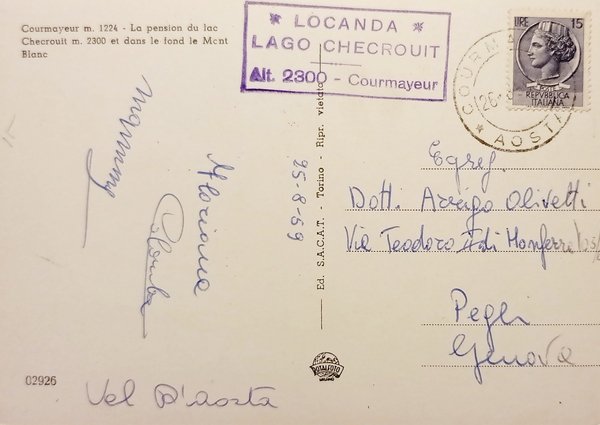 Courmayeur m. 1224 - La pension du lac
Checrouit m. 2300 et dans le fond le Mont
Blanc
★ LOCANDA ★
LAGO CHECROUIT
Alt. 2300 - Courmayeur
LIRE 15
REPVBBLICA
ITALIANA
★ AOSTA
Ed. S.A.C.A.T. - Torino - Ripr. vietata
25-8-69
Floriana
Colomba
Egreg.
Dott. Arrigo Olivetti
Via Teodoro di Monferrato
Pegli
Genova
ROTALFOTO
MILANO
02926
Val D'aosta